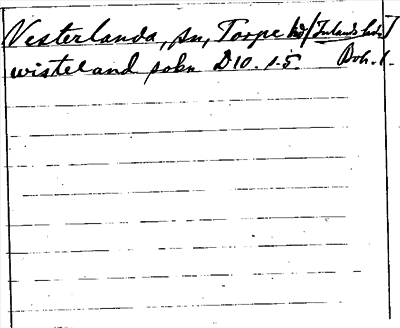 Vesterlanda, sn, Torpe hd [Inlands hd.]
wisteland sokn D10. 1.5. Boh. l.